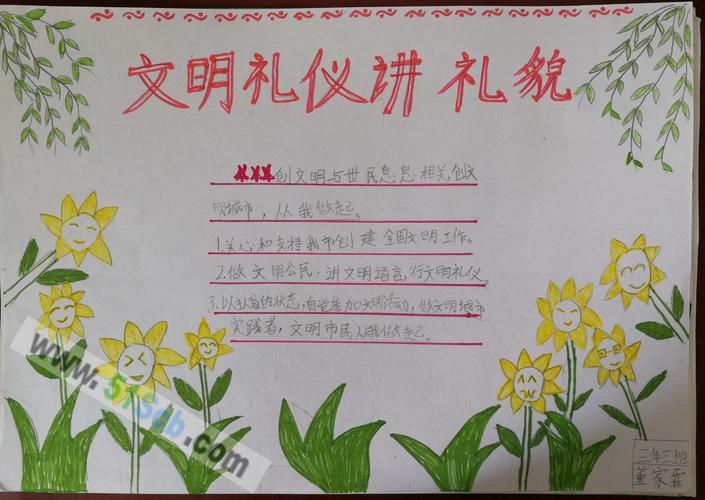 文明礼仪讲礼貌
创文明与世民息息相关,创文
明城市,从我做起。
1.关心和支持我市创建全国文明工作。
2.做文明公民,讲文明语言,行文明礼仪。
3.以认的状态,自觉参加文明活动,做文明城市
实践者,文明市民从我做起。
www.51Seb.com
二年三班
董家霖